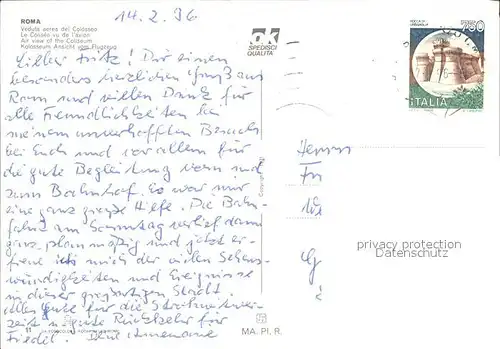 14.2.96
ROMA
Veduta aerea del Colosseo
Le Colisée vu de l'avion
Air view of the Coliseum
Kolosseum Ansicht vom Flugzeug
OK
SPEDISCI
QUALITÀ
750
ITALIA
Lieber Fritz! Dir einen
besonders herzlichen Gruß aus
Rom und vielen Dank für
alle Freundlichkeiten bei
meinem unverhofften Besuch
bei Euch und vor allem für
die gute Begleitung vom und
zum Bahnhof. Es war mir
eine ganz große Hilfe. Die Bahn-
fahrt am Samstag verlief dann
ganz planmäßig und jetzt er-
freue ich mich der vielen Sehens-
würdigkeiten und Ereignisse
in dieser großartigen Stadt.
Alles Gute für die
zeit u. gute Rückkehr für
Friedel. Deine Annemarie
Herrn
Fri
privacy protection
Datenschutz
11
MA. PI. R.